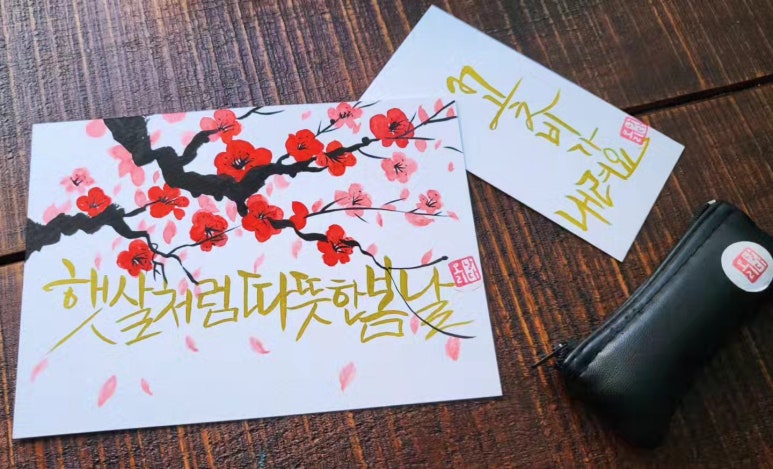 햇살처럼 따뜻한 봄날
비가
내려요